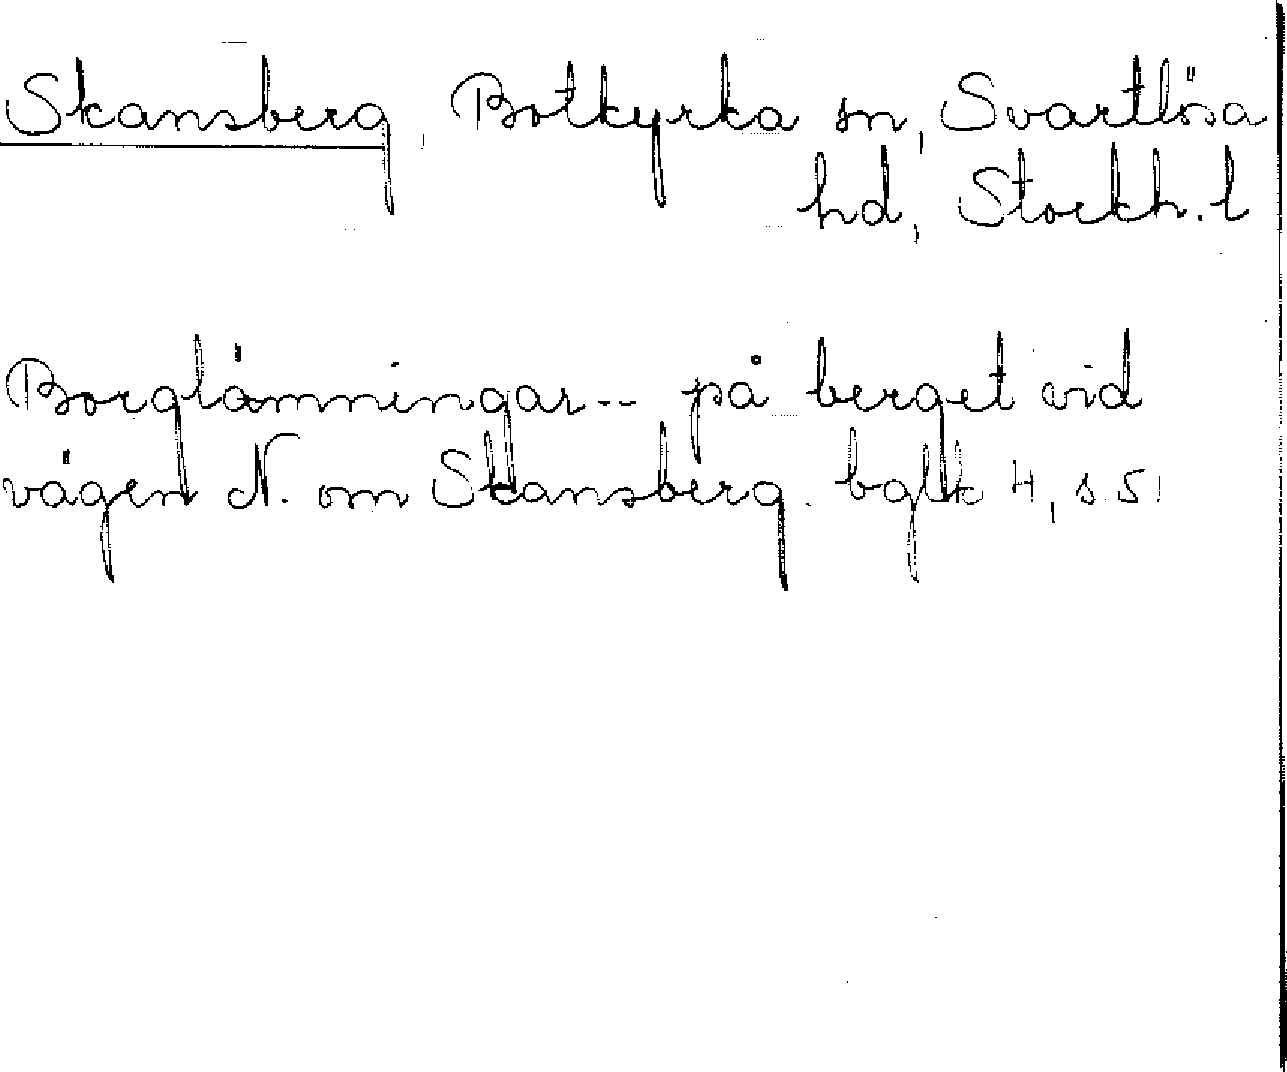 Skansberg, Botkyrka sn, Svartlösa
hd, Stockh. l
Borglämningar -- på berget vid
vägen N. om Skansberg. bglb 4, s. 5